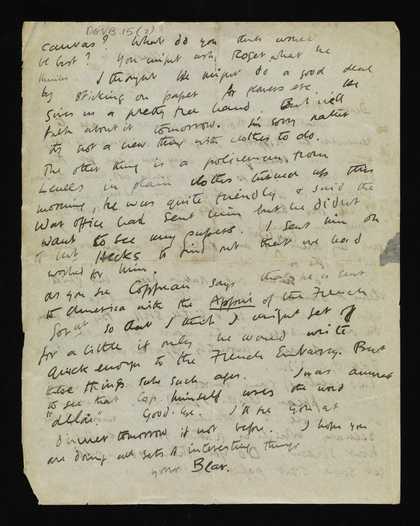 DGVB.15(2)
canvas? What do you think would
be best? You might ask Roger what he
thinks I thought he might do a good deal
by sticking on paper for planes etc. He
gives one a pretty free hand. But we'll
talk about it tomorrow. I'm sorry rather
it's not a new thing with clothes to do.
The other thing is a policeman from
Lewes in plain clothes turned up this
morning, he was quite friendly & said the
War office had sent him but he didn't
want to see my papers. I sent him on
to but Hecks to find out that we had
worked for him.
As you see Coppeau says that he is sent
to America with the Appui of the French
Govt so that I think I might get off
for a little if only he would write
quick enough to the French Embassy. But
these things take such ages. I was amused
to see that Cop. himself uses the word
Good bye. I'll see you at
dinner tomorrow if not before. I hope you
are doing all sorts of interesting things
your Bear.